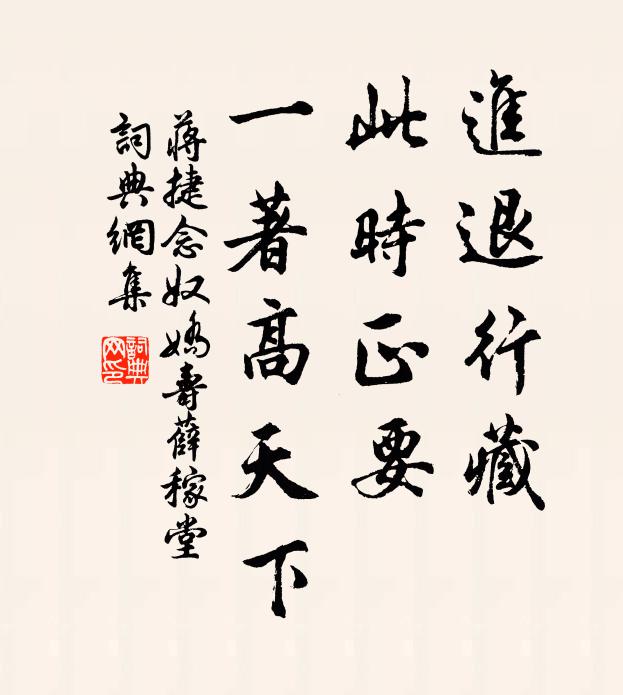 進退行藏
此時正要
一著高天下
蔣捷念奴嬌壽薛稼堂
詞典網集
詞典网印